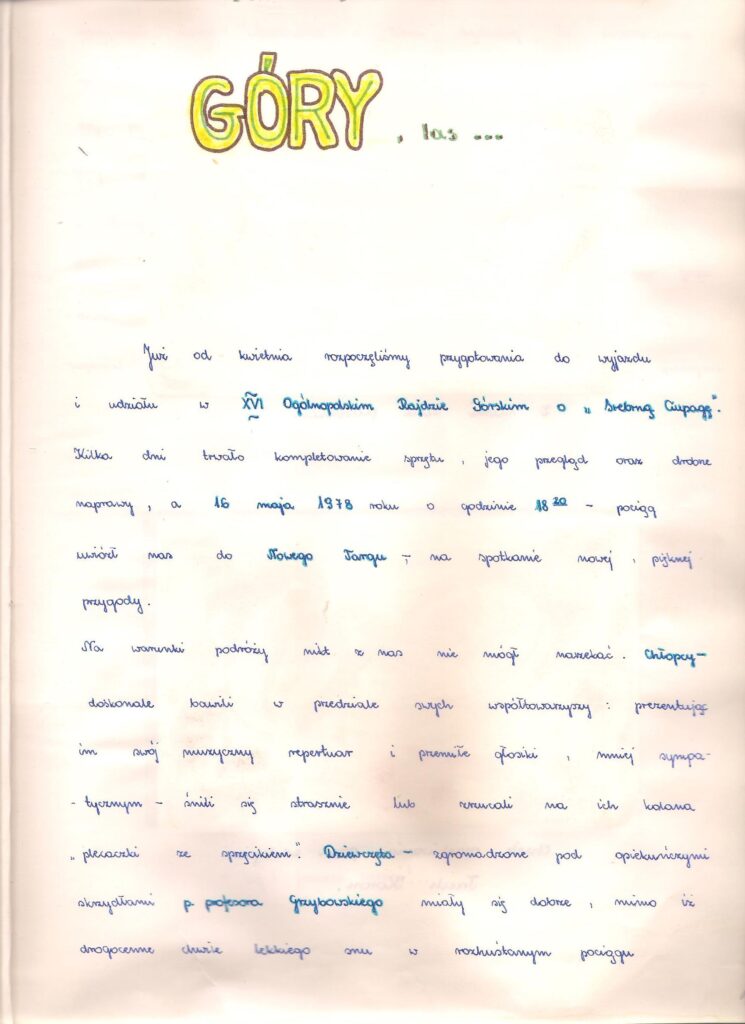 GÓRY, las ...
Już od kwietnia rozpoczęliśmy przygotowania do wyjazdu
i udziału w XVI Ogólnopolskim Rajdzie Górskim o „Srebrną Ciupagę".
Kilka dni trwało kompletowanie sprzętu, jego przegląd oraz drobne
naprawy, a 16 maja 1978 roku o godzinie 18 20 - pociąg
uwiózł nas do Nowego Targu - na spotkanie nowej, pięknej
przygody.
Na warunki podróży nikt z nas nie mógł narzekać. Chłopcy -
doskonale bawili w przedziale swych współtowarzyszy : prezentując
im swój muzyczny repertuar i przemiłe głosiki, mniej sympa-
- tycznym - śnili się strasznie lub zrzucali na ich kolana
„plecaczki ze sprzęcikiem". Dziewczęta - zgromadzone pod opiekuńczymi
skrzydłami p. profesora Grzybowskiego miały się dobrze, mimo iż
drogocenne chwile lekkiego snu w rozhuśtanym pociągu